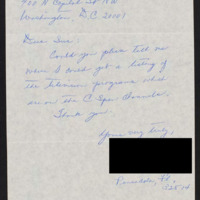 400 N Capitol St NW
Washington, D.C. 20001
Dear Sir:
Could you please tell me
where I could get a listing of
the television programs which
are on the C Span Channel.
Thank you
Yours very truly,
Fl.